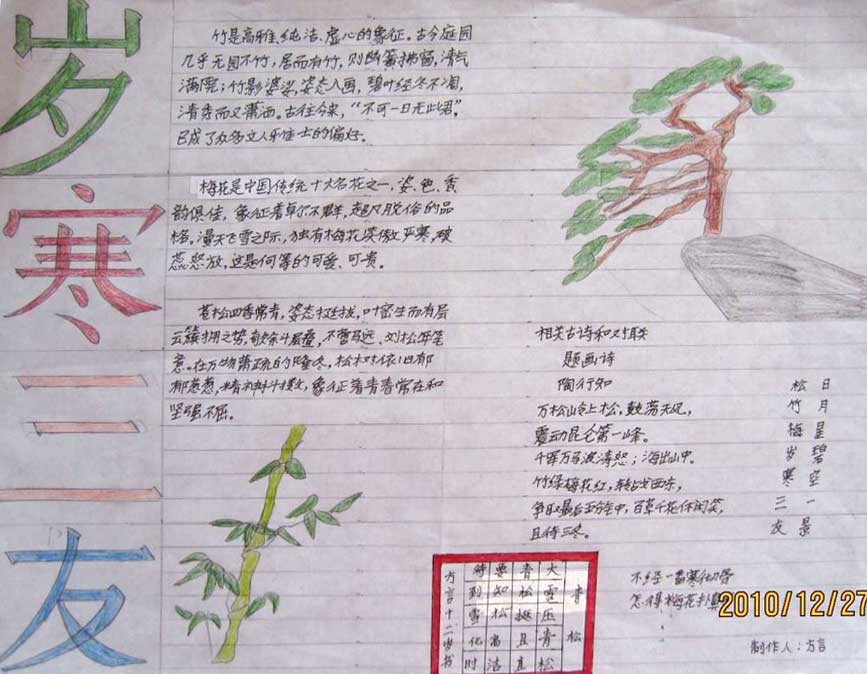 岁
寒
三
友
竹是高雅、纯洁、虚心的象征。古今庭园
几乎无园不竹,居而有竹,则幽篁拂窗,清气
满院;竹影婆娑,姿态入画,碧叶经冬不凋,
清秀而又潇洒。古往今来,“不可一日无此君”,
已成了众多文人雅士的偏好。
梅花是中国传统十大名花之一,姿、色、香
韵俱佳,象征着卓尔不群,超凡脱俗的品
格。漫天飞雪之际,独有梅花笑傲严寒,破
蕊怒放,这是何等的可爱、可贵。
苍松四季常青,姿态挺拔,叶密生而有层
云簇拥之势,欹斜层叠,不啻马远、刘松年笔
意。在万物萧疏的隆冬,松树依旧郁
郁葱葱,精神抖擞,象征着青春常在和
坚强不屈。
相关古诗和对联
题画诗
陶行知
万松岭上松,鼓荡天风,
震动昆仑第一峰。
千军万马波涛怒;海出山中。
竹绿梅花红,转战西东,
争取最后五分钟,百草千花休闲笑,
且待三冬。
松 日
竹 月
梅 星
岁 碧
寒 空
三 一
友 景
青松
大雪压青松
青松挺且直
要知松高洁
待到雪化时
方言十二岁书
不经一番寒彻骨
怎得梅花扑鼻
2010/12/27
制作人:方言